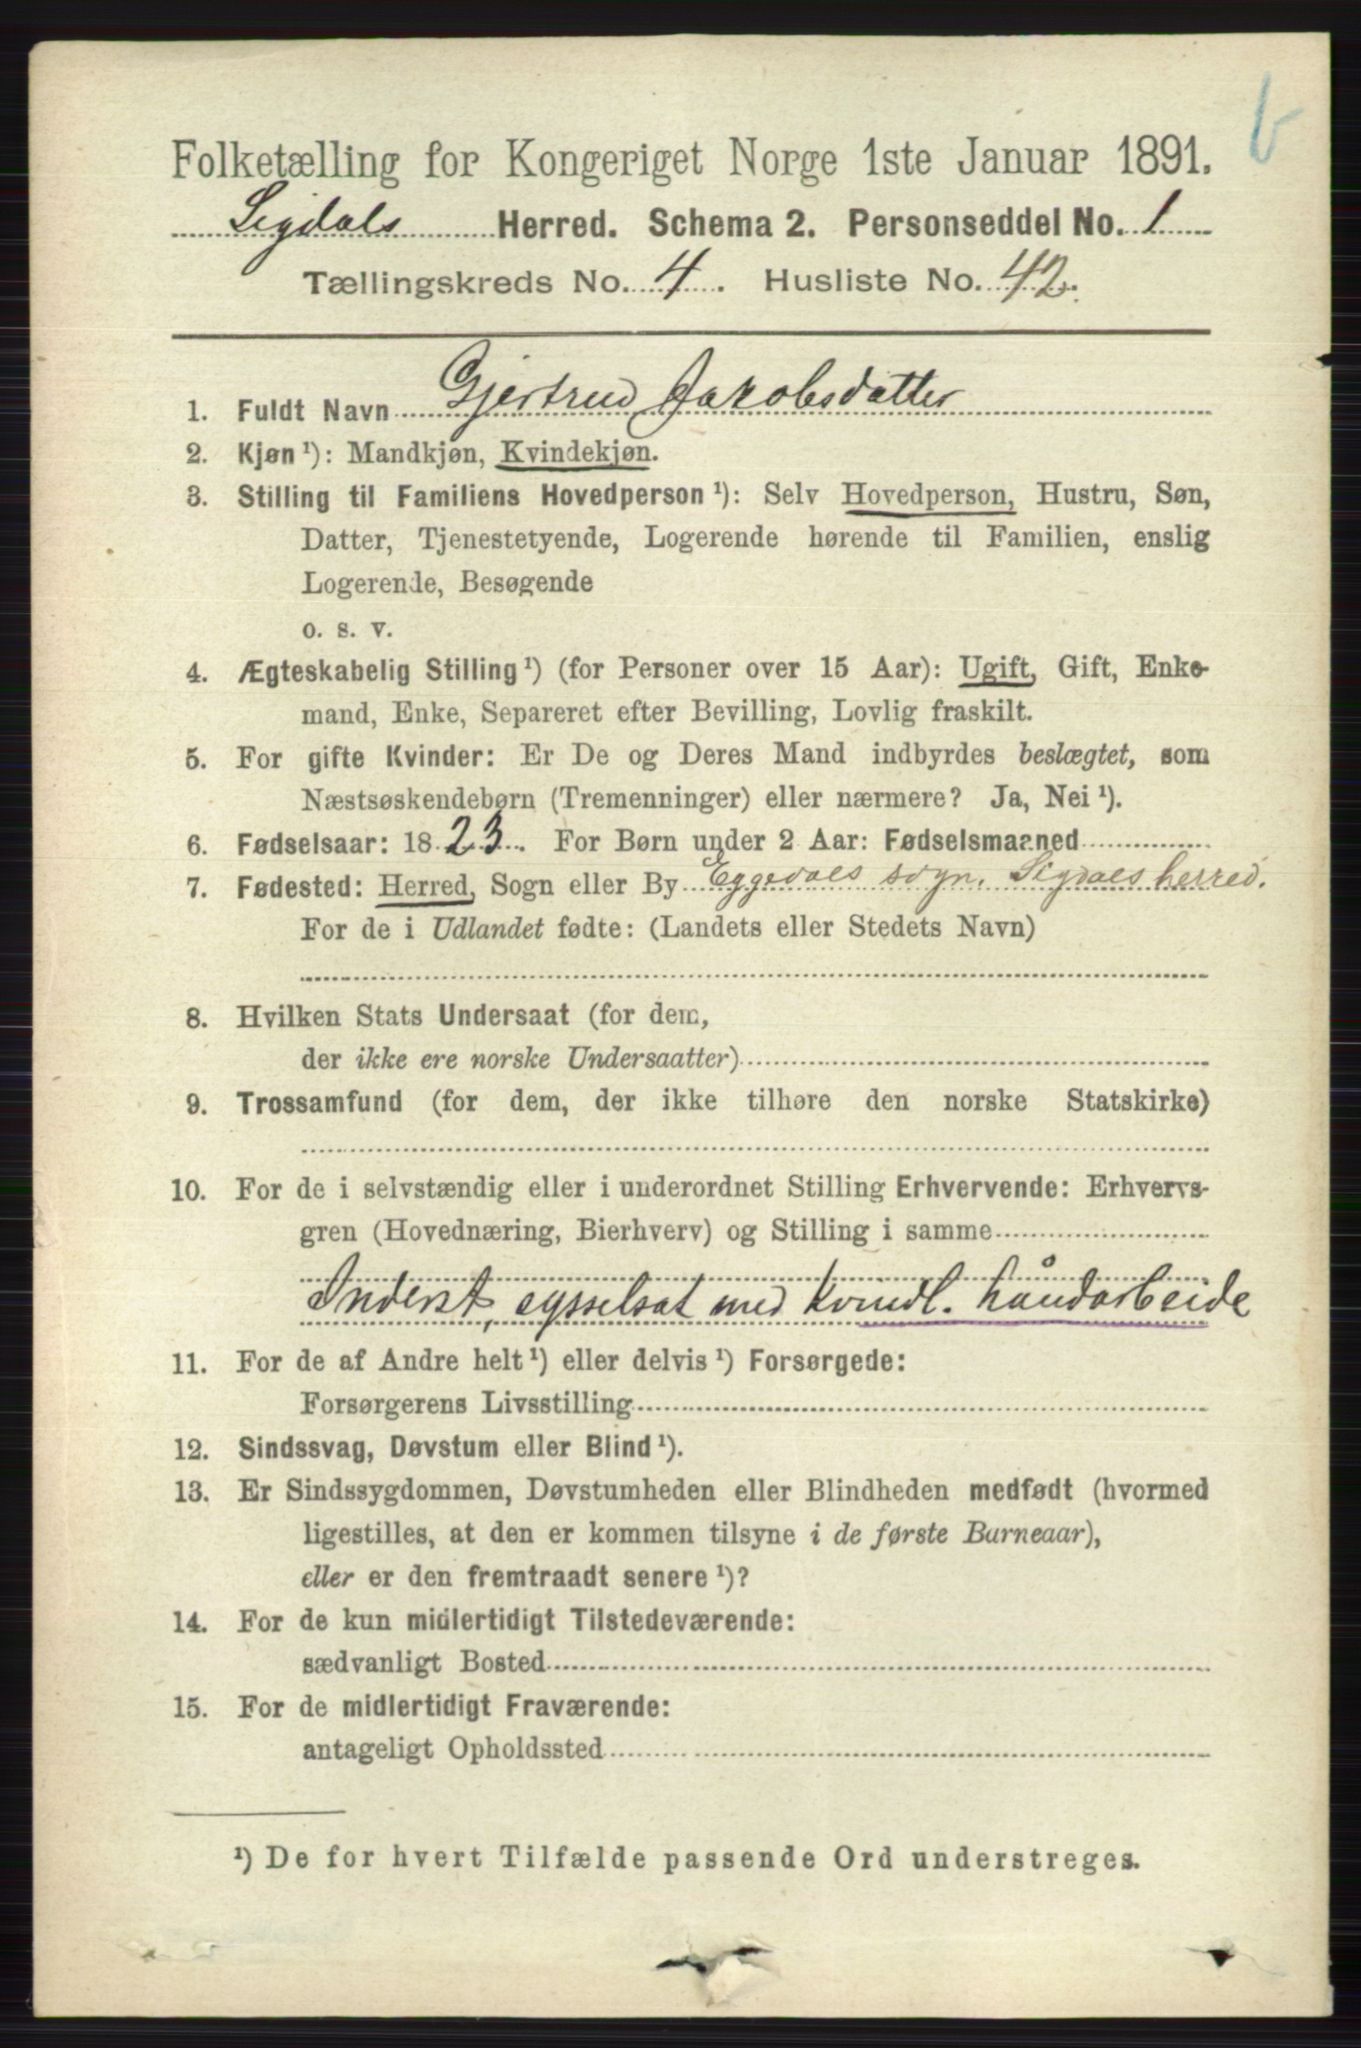 b
Folketælling for Kongeriget Norge 1ste Januar 1891.
Sigdals Herred. Schema 2. Personseddel No. 1
Tællingskreds No. 4. Husliste No. 42.
1. Fuldt Navn Gjertrud Jakobsdatter
2. Kjøn ¹): Mandkjøn, Kvindekjøn.
3. Stilling til Familiens Hovedperson ¹): Selv Hovedperson, Hustru, Søn,
Datter, Tjenestetyende, Logerende hørende til Familien, enslig
Logerende, Besøgende
o. s. v.
4. Ægteskabelig Stilling ¹) (for Personer over 15 Aar): Ugift, Gift, Enke-
mand, Enke, Separeret efter Bevilling, Lovlig fraskilt.
5. For gifte Kvinder: Er De og Deres Mand indbyrdes beslægtet, som
Næstsøskendebørn (Tremenninger) eller nærmere? Ja, Nei ¹).
6. Fødselsaar: 1823. For Børn under 2 Aar: Fødselsmaaned
7. Fødested: Herred, Sogn eller By Eggedals sogn, Sigdals herred.
For de i Udlandet fødte: (Landets eller Stedets Navn)
8. Hvilken Stats Undersaat (for dem,
der ikke ere norske Undersaatter)
9. Trossamfund (for dem, der ikke tilhøre den norske Statskirke)
10. For de i selvstændig eller i underordnet Stilling Erhvervende: Erhvervs-
gren (Hovednæring, Bierhverv) og Stilling i samme
Inderst, sysselsat med kvindl. håndarbeide
11. For de af Andre helt ¹) eller delvis ¹) Forsørgede:
Forsørgerens Livsstilling
12. Sindssvag, Døvstum eller Blind ¹).
13. Er Sindssygdommen, Døvstumheden eller Blindheden medfødt (hvormed
ligestilles, at den er kommen tilsyne i de første Barneaar),
eller er den fremtraadt senere ¹)?
14. For de kun midlertidigt Tilstedeværende:
sædvanligt Bosted
15. For de midlertidigt Fraværende:
antageligt Opholdssted
¹) De for hvert Tilfælde passende Ord understreges.